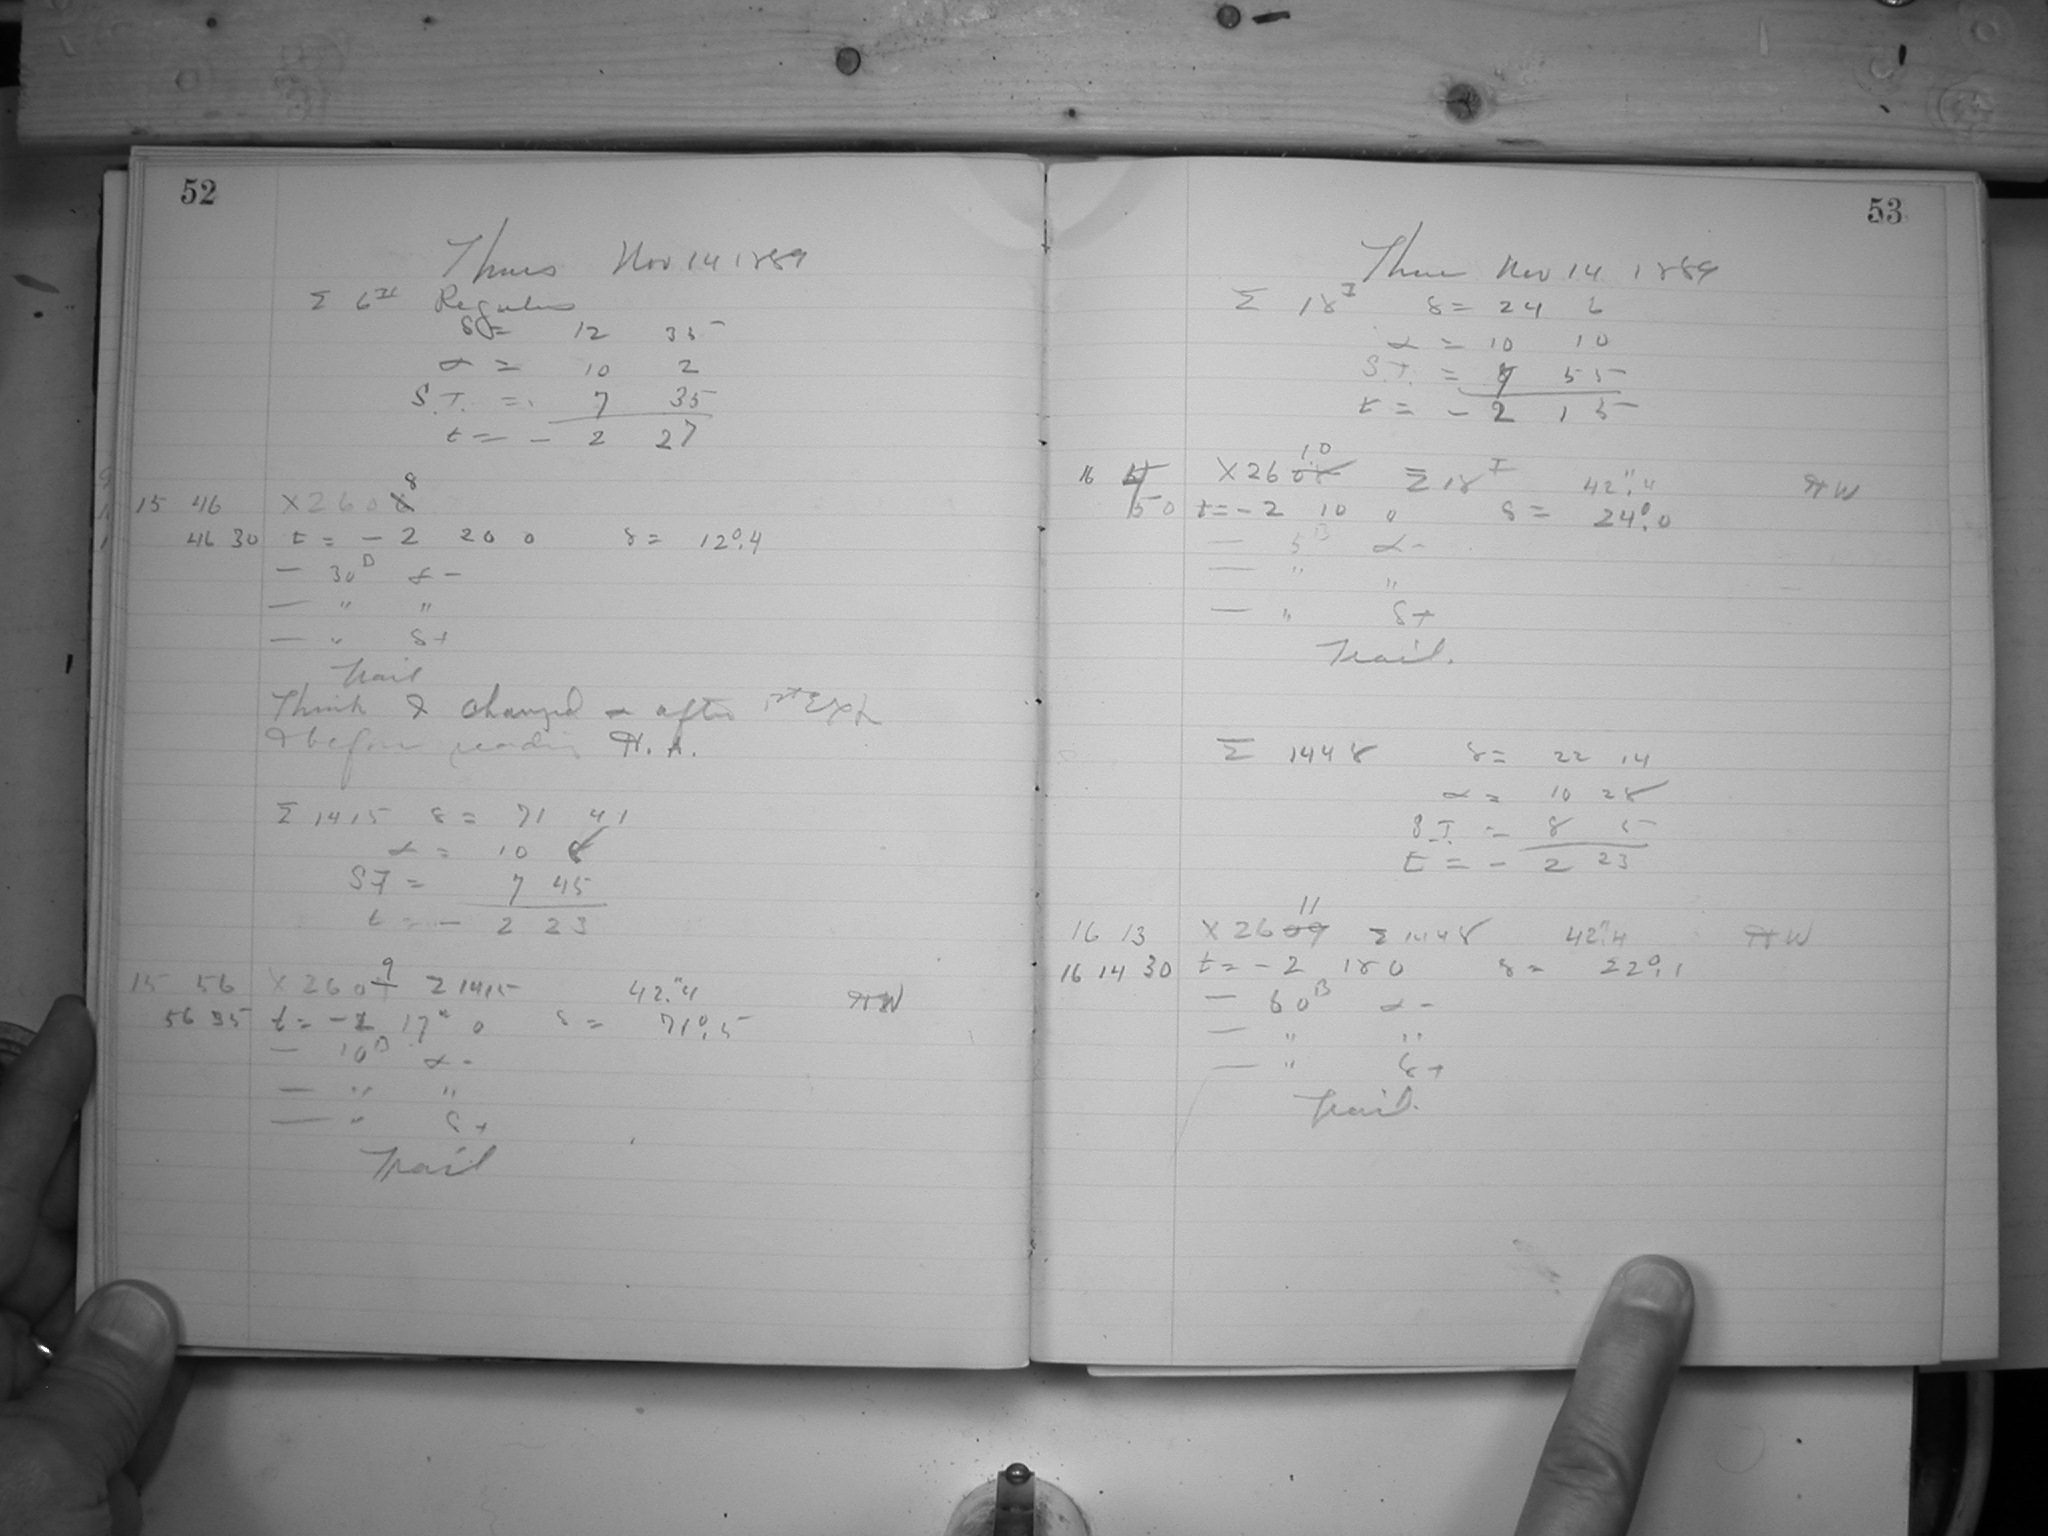 52
Thurs Nov 14 1889
Σ 6 II Regulus
δ = 12 35
α = 10 2
S.T. = 7 35
t = - 2 27
15 46 X 260 8
46 30 t = - 2 20 0 δ = 12°.4
— 30 B α -
— " "
— " δ +
Trail
Think I changed α after 1st Exp
& before reading H.A.
Σ 1415 δ = 71 41
α = 10 8
S T = 7 45
t = - 2 23
15 56 X 260 9 Σ 1415 42".4 HW
56 35 t = - 2 17 0 δ = 71°.5
— 10 B α -
— " "
— " δ +
Trail
53
Thurs Nov 14 1889
Σ 18 I δ = 24 6
α = 10 10
S.T. = 7 55
t = - 2 15
16 4 X 26 10 Σ 18 I 42".4 HW
50 t = - 2 10 0 δ = 24°.0
— 5 B α -
— " "
— " δ +
Trail.
Σ 1448 δ = 22 14
α = 10 28
S.T. = 8 5
t = - 2 23
16 13 X 26 11 Σ 1448 42".4 HW
16 14 30 t = - 2 18 0 δ = 22°.1
— 60 B α -
— " "
— " δ +
Trail.